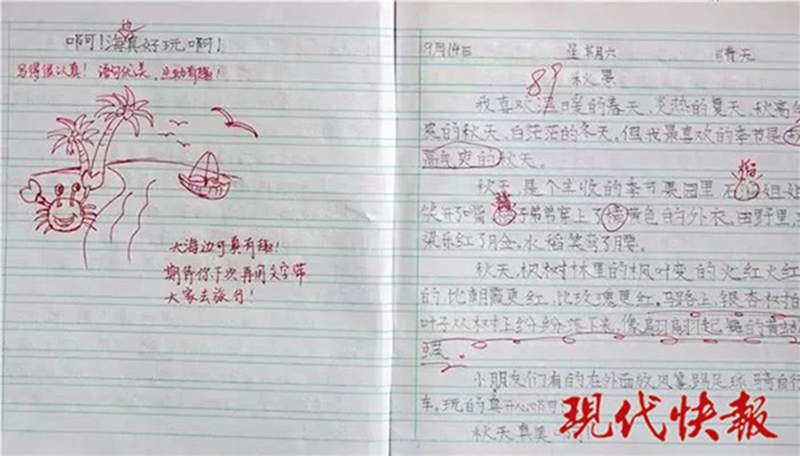 啊可!海真好玩啊!
边
写得很认真! 语句优美, 生动有趣!
大海边可真有趣!
期待你下次再用文字带
大家去旅行!
9月14日 星期六 晴天
89
秋景
我喜欢温暖的春天、炎热的夏天、秋高气
爽的秋天、白茫茫的冬天。但我最喜欢的季节是
高气爽的秋天。
秋天是个丰收的季节果园里石 姐姐
榴
笑开了嘴 子弟弟穿上了橘黄色的外衣, 田野里,
梁乐红了脸, 水稻笑弯了腰。
秋天, 枫树林里的枫叶变的火红火红
的, 比朝霞更红, 比玫瑰更红。马路上, 银杏树
叶子从树上纷纷落下来, 像翩翩起舞的黄蝴
小朋友们有的在外面放风筝踢足球, 骑自行
车, 玩的真开心啊
秋天真美
现代快報